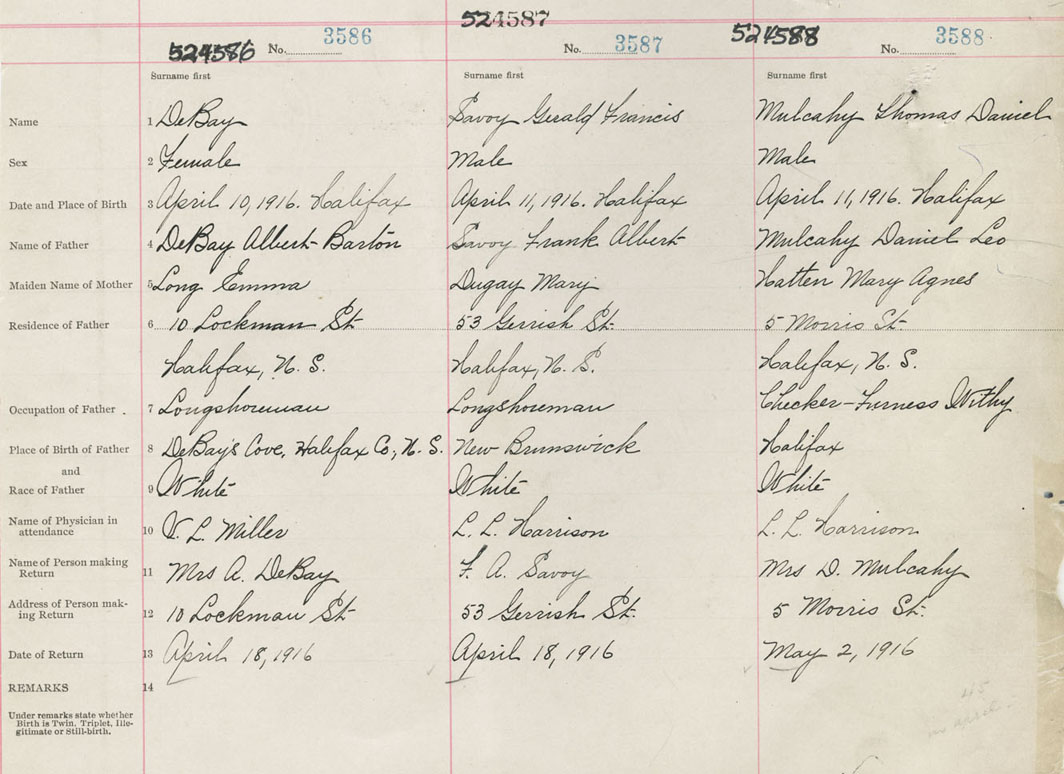 524586 No. 3586 524587 No. 3587 524588 No. 3588
Surname first Surname first Surname first
Name 1 DeBay Savoy Gerald Francis Mulcahy Thomas Daniel
Sex 2 Female Male Male
Date and Place of Birth 3 April 10, 1916. Halifax April 11, 1916. Halifax April 11, 1916. Halifax
Name of Father 4 DeBay Albert Barton Savoy Frank Albert Mulcahy Daniel Leo
Maiden Name of Mother 5 Long Emma Dugay Mary Hatten Mary Agnes
Residence of Father 6 10 Lockman St. 53 Gerrish St. 5 Morris St.
Halifax, N. S. Halifax, N. S. Halifax, N. S.
Occupation of Father . 7 Longshoreman Longshoreman Checker - Furness Withy
Place of Birth of Father 8 DeBay's Cove, Halifax Co., N. S. New Brunswick Halifax
and
Race of Father 9 White White White
Name of Physician in
attendance 10 V. L. Miller L. L. Harrison L. L. Harrison
Name of Person making
Return 11 Mrs A. DeBay F. A. Savoy Mrs D. Mulcahy
Address of Person mak-
ing Return 12 10 Lockman St. 53 Gerrish St. 5 Morris St.
Date of Return 13 April 18, 1916 April 18, 1916 May 2, 1916
REMARKS 14
Under remarks state whether
Birth is Twin, Triplet, Ille-
gitimate or Still-birth.